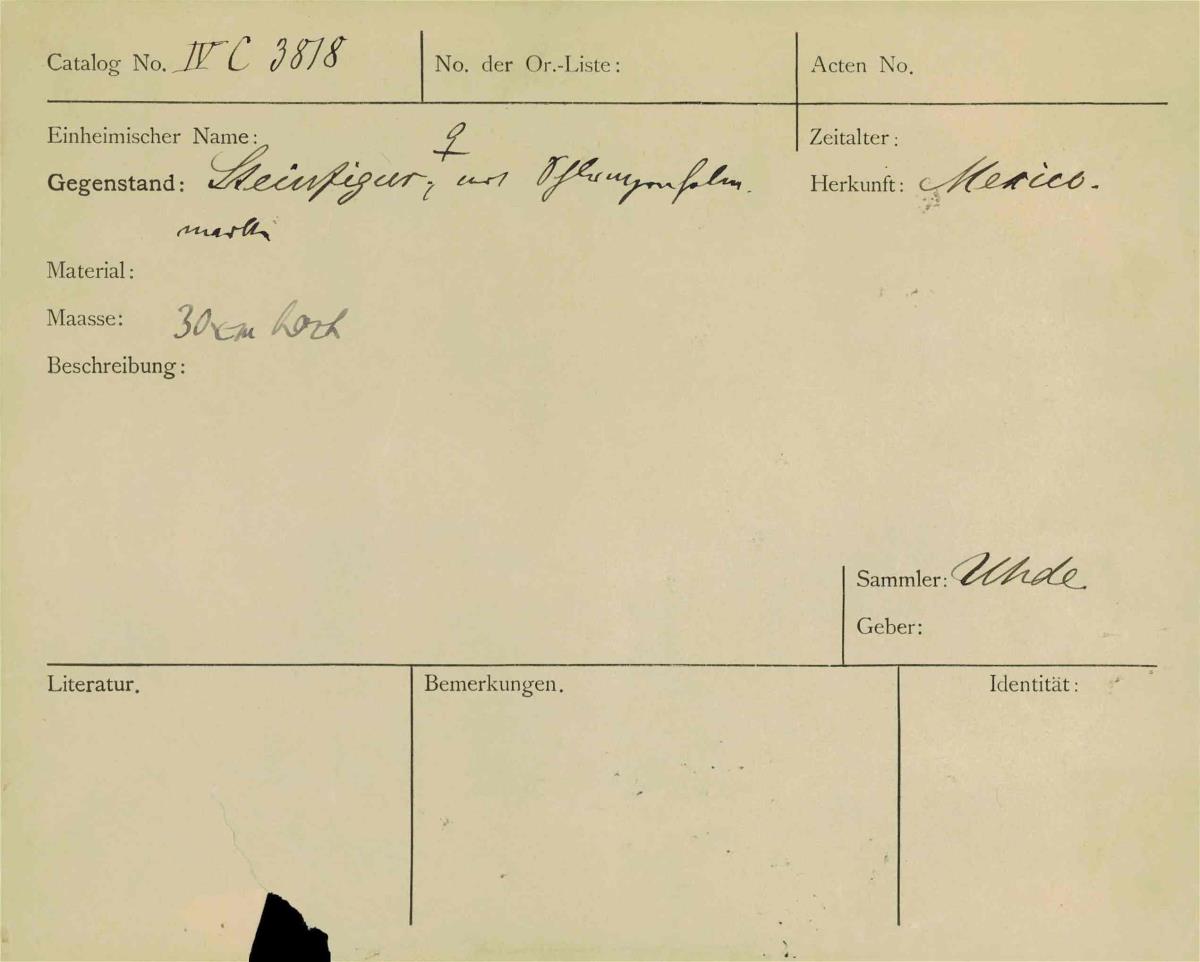 Catalog No. IV C 3818
No. der Or.-Liste:
Acten No.
Einheimischer Name:
♀
Zeitalter:
Gegenstand: Steinfigur, mit
Herkunft: Mexico.
Material:
Maasse: 30 cm hoch
Beschreibung:
Sammler: Uhde
Geber:
Literatur.
Bemerkungen.
Identität: